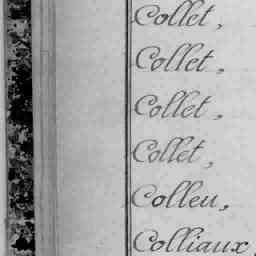 Collet,
Collet,
Collet,
Collet,
Colleu,
Colliaux,